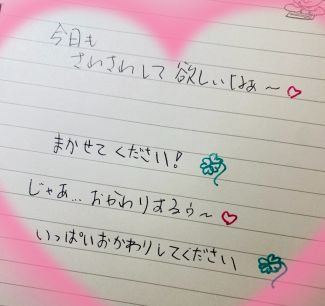 今日も
さわさわして欲しいなぁ〜♡
まかせてください!
じゃあ…おかわりするぅ〜♡
いっぱいおかわりしてください